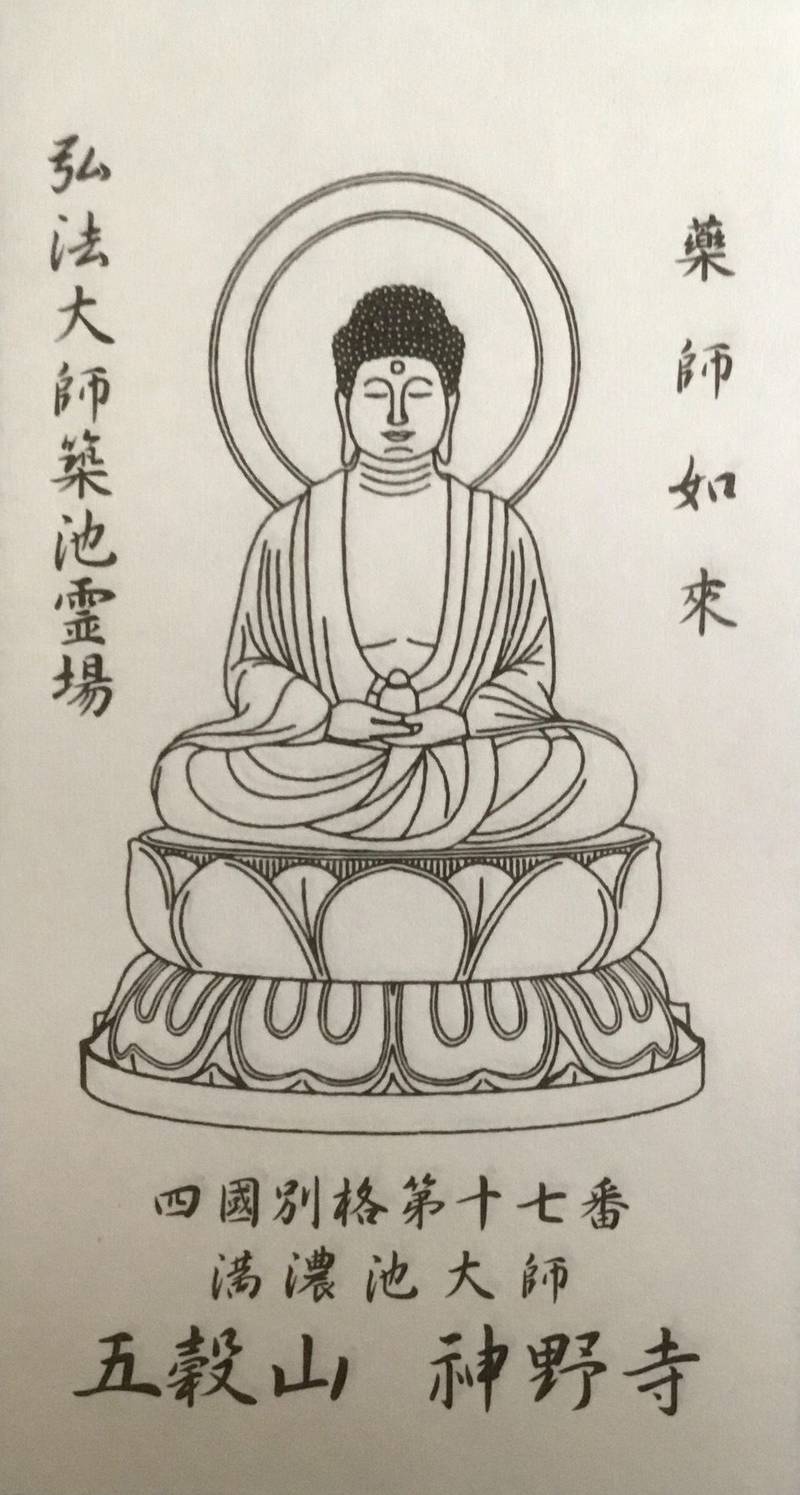 藥師如來
弘法大師築池霊場
四國別格第十七番
満濃池大師
五穀山 神野寺